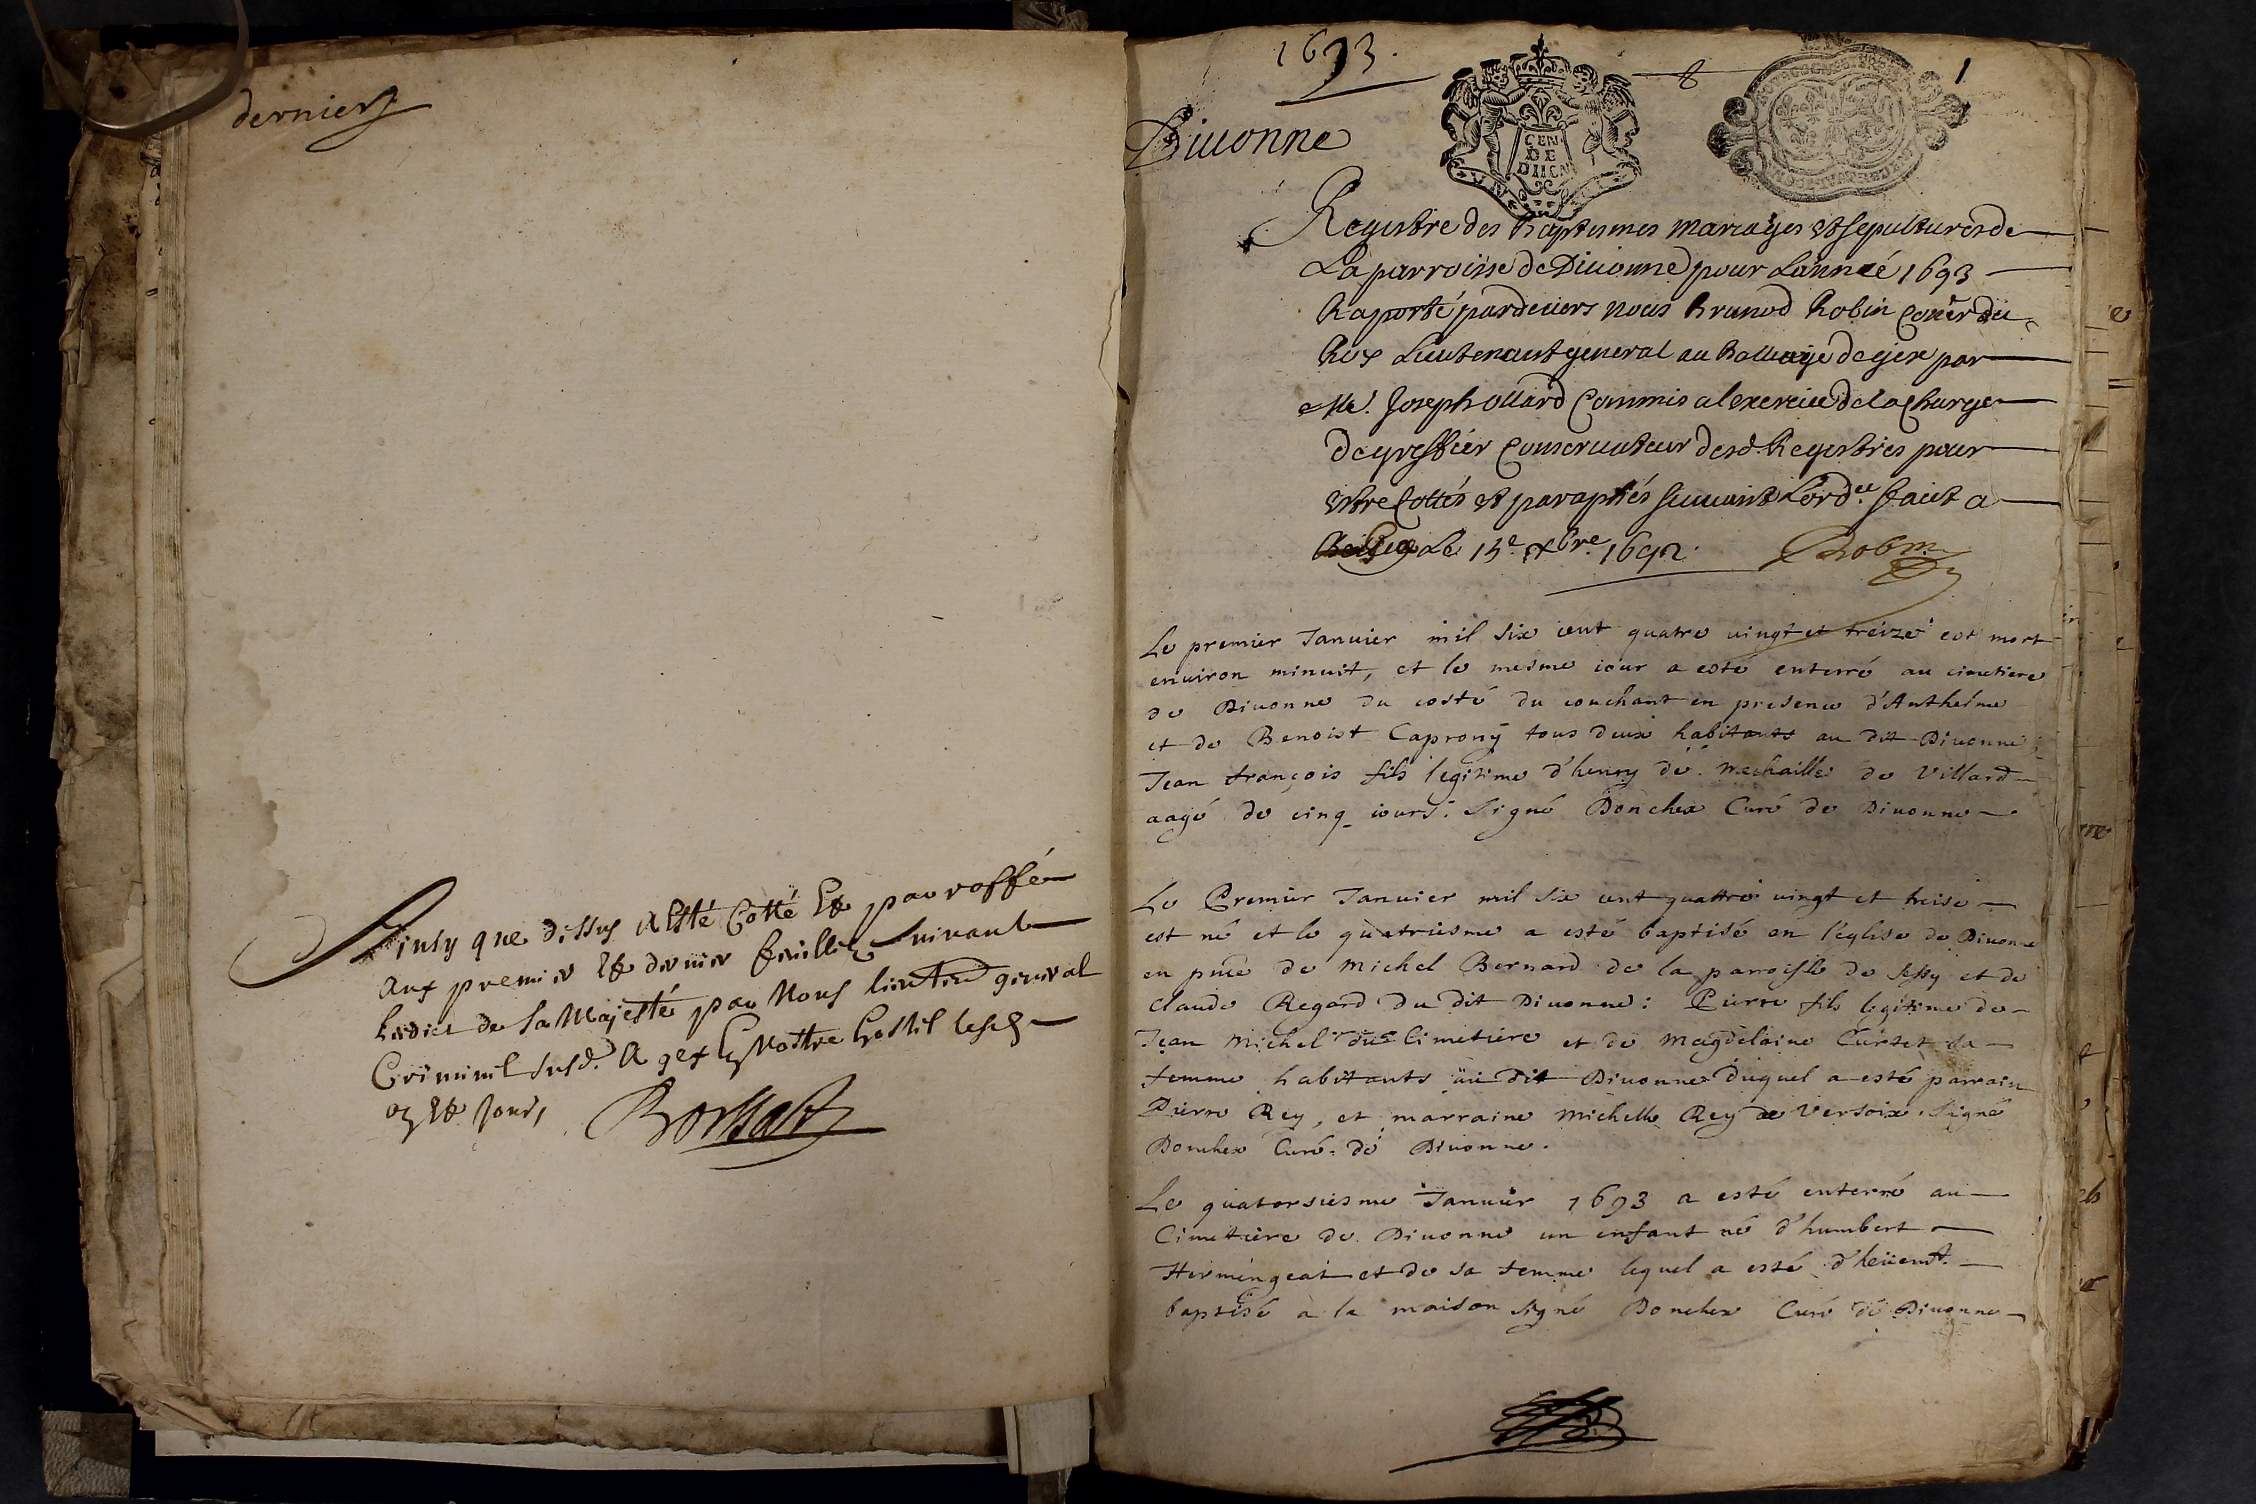 dernier
Ainsy que dessus a esté cotté et parraffé
aux premier et dernier feuillet suivant
lesdict de sa Majesté par Nous lieuten general
Criminel susd. A gex En Nostre hostil lesd
an et jour,
1693.
1
Diuonne
CEN
DE
Registre des Baptesmes mariages et sepultures de
La parroisse de Diuonne pour L'anneé 1693
Raporté pardeuers nous Brunod Robin Coner du
Roy Lieutenant general au Balliage de gex par
Me. Joseph ollard Commis a lexercice de la charge
de greffier Conseruateur desd. Registres pour
estre Cottés et paraphés suiuant L'ord.ce faict a
Gex Le 15e xbre 1692.
Robin
Le premier Ianuier mil six cent quatre uingt et treize est mort
enuiron minuit, et le mesme iour a esté enterré au cimetiere
de Diuonne du costé du couchant en presence d'Anthelme
et de Benoist Caprony tous deux habitants au dit Diuonne
Jean françois fils legitime d'henry de Mechaille de Villard
aagé de cinq iours. Signé Bonchex Curé de Diuonne
Le Premier Ianuier mil six cent quattre uingt et treise
est né et le quatriesme a esté baptisé en l'église de Diuonne
en pnce de Michel Bernard de la parroisse de Sessy et de
Claude Regard du dit Diuonne: Pierre fils legitime de
Jean Michel du Cimetiere et de Magdelaine Curtet sa
femme habitants au dit Diuonne duquel a esté parrain
Pierre Rey, et marraine Michelle Rey de Versoix. Signé
Bonchex Curé de Diuonne.
Le quatorsiesme Ianuier 1693 a esté enterré au
Cimetiere de Diuonne un enfant né d'humbert
Hermingeat et de sa femme lequel a esté d'heüemt.
baptisé à la maison signé Bonchex Curé de Diuonne